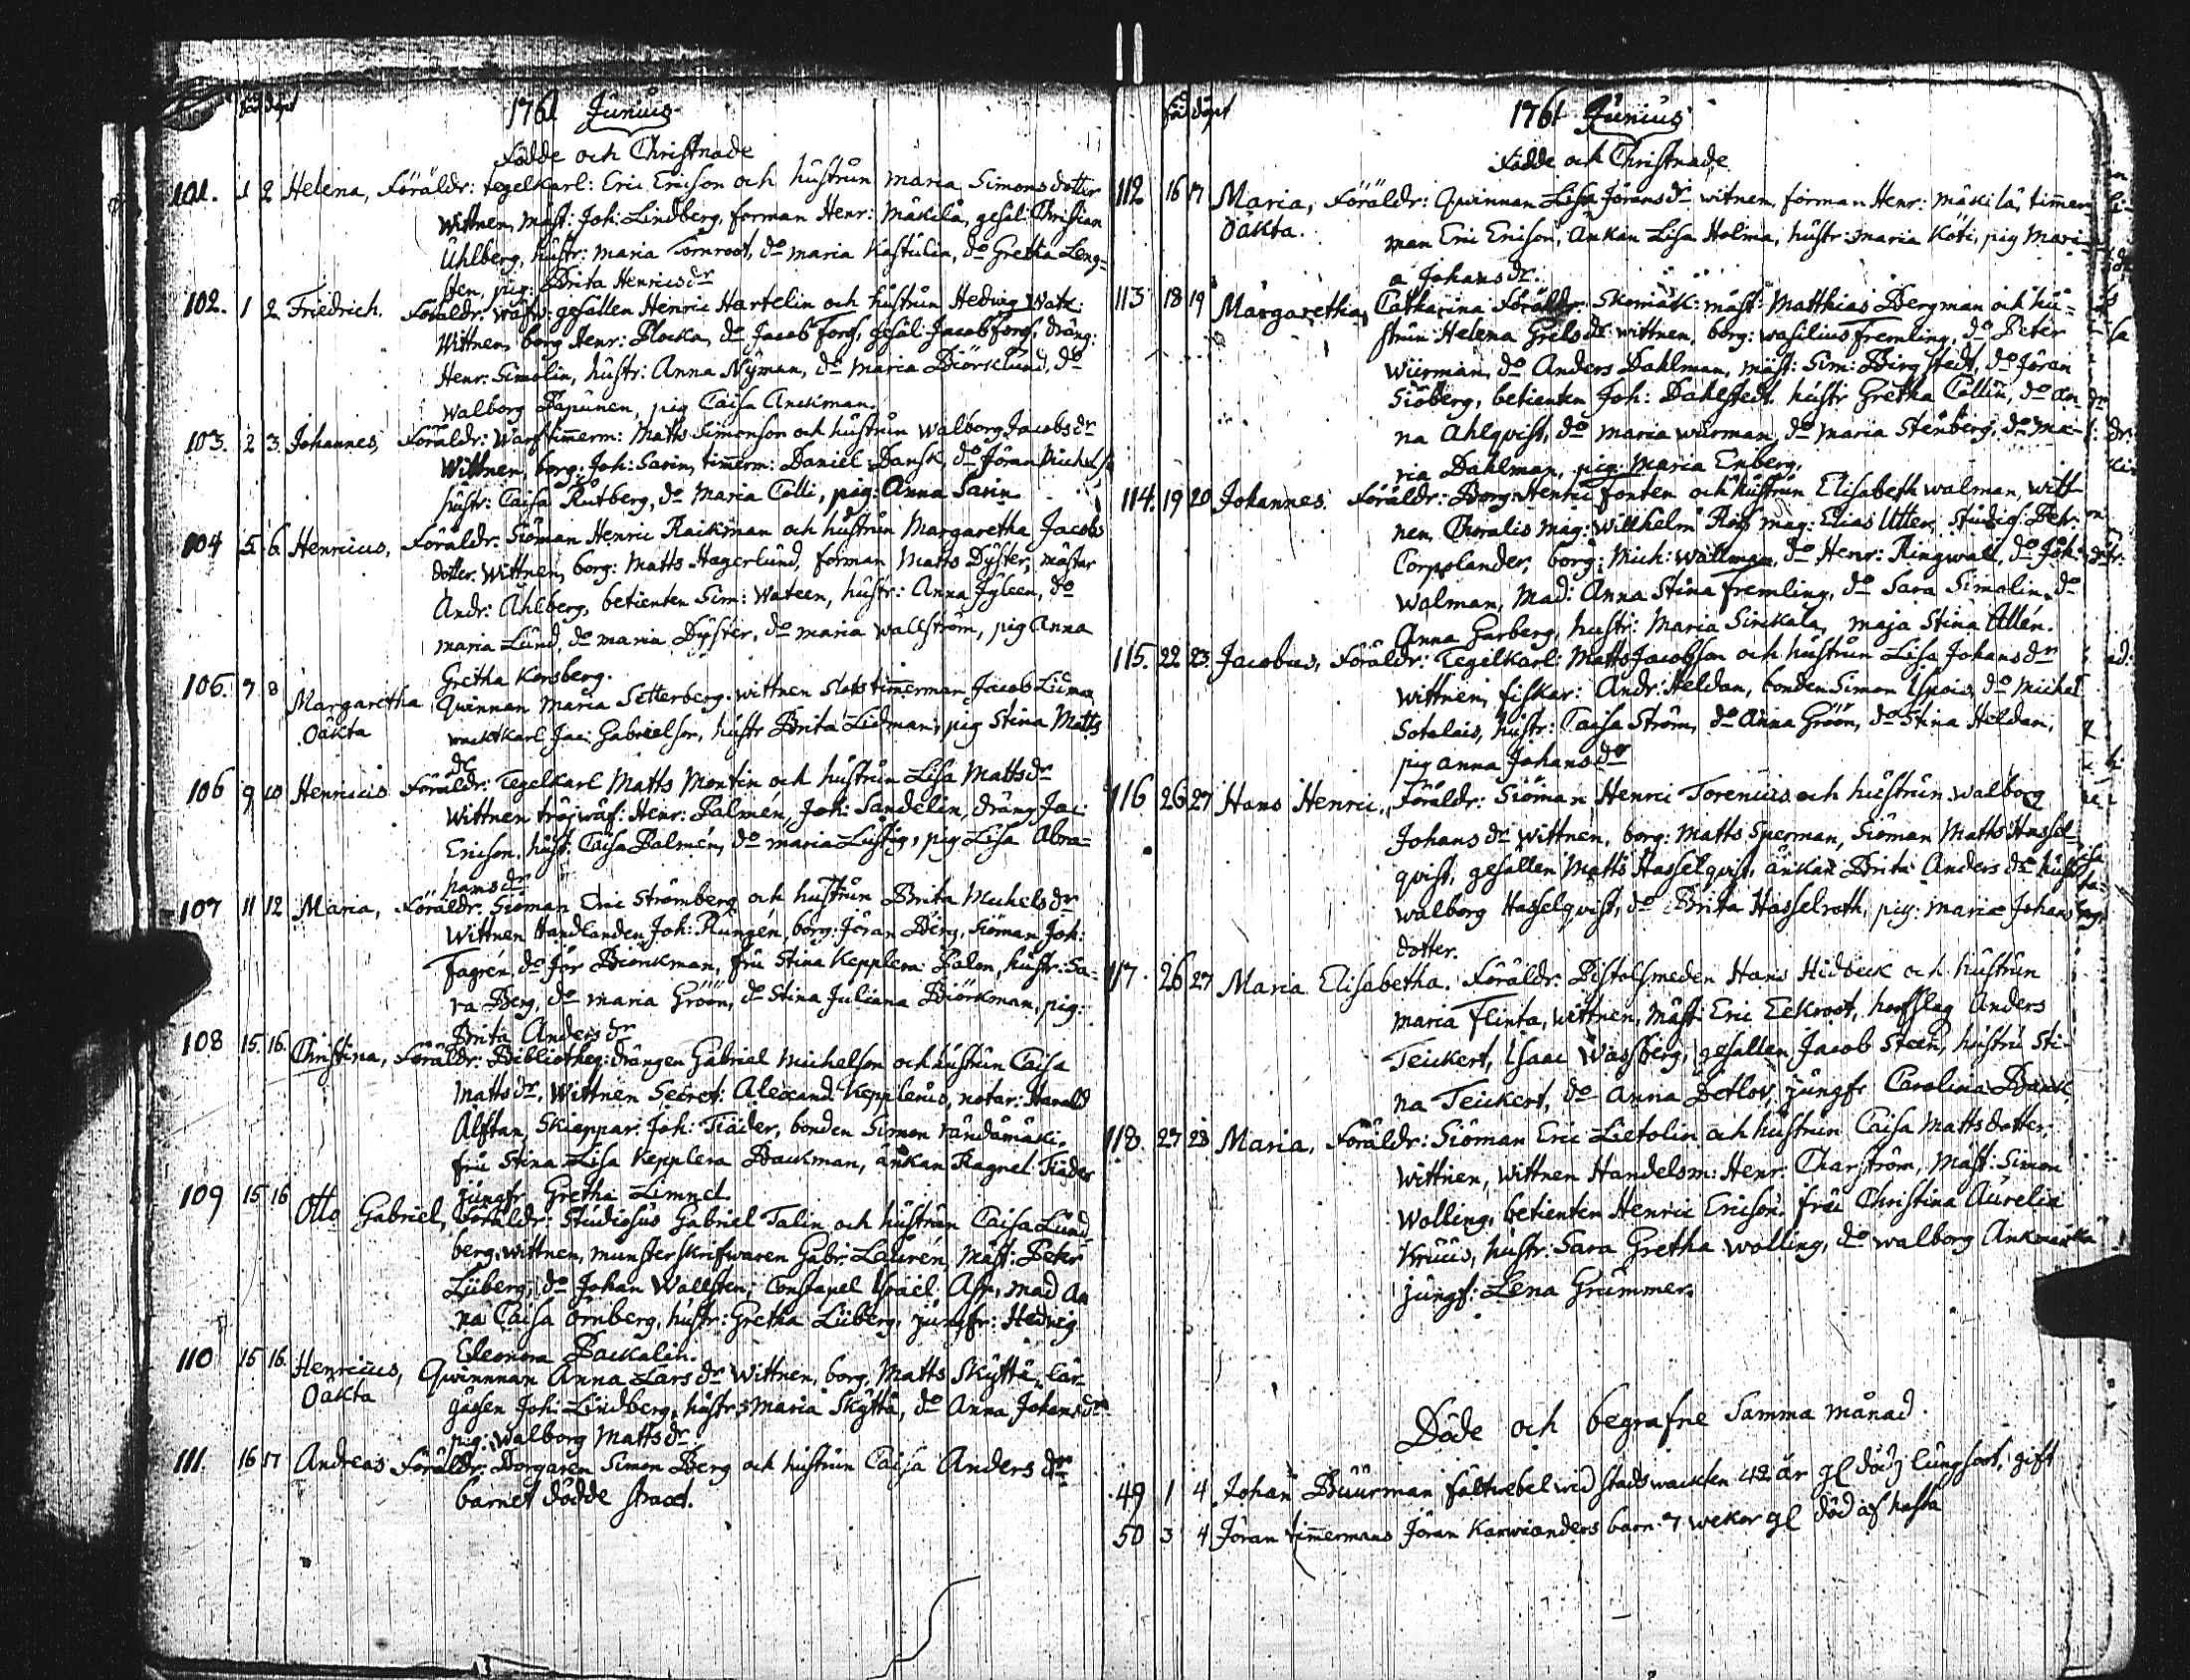 föd döpt
1761 Junius
Födde och Christnade
101. 1 2 Helena, Föräldr: tegelkarl: Eric Ericson och hustrun Maria Simonsdotter
Wittnen, mäst: Joh: Lindberg, forman Henr: Mäkilä, gesäl: Christian
Uhlberg, hustr: Maria Törnroot, do Maria Kastulin, do Gretha Leng=
sten, pig: Brita Henricsdr
102. 1 2 Friedrich. Föräldr: wäfv: gesällen Henric Hartelin och hustrun Hedvig
Wittnen, borg Henr: Blocka, do Jacob Forss, gesäl: Jacob Forss, dräng:
Henr: Simolin, hustr: Anna Nyman, do Maria Biörcklund, do
Walborg Papunen, pig Caisa Anckman.
103. 2 3. Johannes, Föräldr: Warftimmerm: Matts Simonson och hustrun Walborg Jacobsdr
Wittnen, borg: Joh: Sarin, timmerm: Daniel Dansk, do Jöran Michels
hustr: Caisa Rutberg, do Maria Colli, pig: Anna Sarin
104 5 6 Henricus, Föräldr: Siöman Henric Raickman och hustrun Margaretha Jacobs
dotter. Wittnen, borg: Matts Hagerlund, forman Matts Dyster, mästar
Andr: Ahlberg, betienten Sim: Wateen, hustr: Anna Igleen, do
Maria Lund, do Maria Dyster, do Maria Wallström, pig Anna
Gretha Korsberg.
106. 7 8 Margaretha Qwinnan Maria Setterberg. wittnen Slotstimmerman Jacob Lidman
Oäkta wacktkarl Jac: Gabrielson, hustr Brita Lidman, pig Stina Matts
dr
106 9 10 Henricus Föräldr: Tegelkarl Matts Montin och hustrun Lisa Mattsdr
Wittnen tröjwäf: Henr: Palmén, Joh: Sandelin, dräng Jac:
Ericson, hust: Caisa Palmén, do Maria Lustig, pig Lisa Abra=
hamsdr
107 11 12 Maria, Föräldr: Siöman Eric Strömberg och hustrun Brita Michelsdr
Wittnen Handlanden Joh: Rungén, borg: Jöran Berg, Siöman Joh:
Fagrén, do Jör Biörckman, fru Stina Kepplera Palon, hustr: Sa=
ra Berg, do Maria Gröön, do Stina Juliana Biörkman, pig:
Brita Andersdr
108 15. 16. Christina, Föräldr: Bibliotheq: drängen Gabriel Michelson och hustrun Caisa
Mattsdr. Wittnen Secret: Alexand: Kepplerus, notar: Harald
Alftan, Skieppar: Joh: Tiäder, bonden Simon randamäki,
fru Stina Lisa Kepplera Backman, änkan Ragnel Tiäder
jungfr Gretha Limnel.
109 15 16 Otto Gabriel, Föräldr: Studiosus Gabriel Talin och hustrun Caisa Lund=
berg, wittnen, munsterskrifwaren Gabr: Laurén, Mäst: Petter
Liiberg, do Johan Wallsten, Constapel Israel Asp, mad An
na Caisa Örnberg, hustr: Gretha Liiberg, jungfr: Hedvig
Eleonora Packalin.
110 15 16. Henricus, Qwinnnan Anna Larsdr Wittnen, borg. Matts Skyttä, lär=
Oäkta gåssen Joh: Lindberg, hustr: Maria Skyttä, do Anna Johansdr
pig: Walborg Mattsdr
111. 16 17 Andreas Föräldr: Borgaren Simon Berg och hustrun Caisa Andersdr
barnet dödde straxt.
föd döpt
1761 Junius
Födde och Christnade
112 16 17 Maria, Föräldr: Qwinnan Lisa Jöransdr witnen, forman Henr: Mäkilä, timmer
Oäkta. man Eric Ericson, Änkan Lisa Holma, hustr: Maria Köti, pig Mari=
a Johansdr.
113 18 19 Margaretha, Catharina Föräldr: Skomak: mäst: Matthias Bergman och hu=
strun Helena Grelsdr wittnen, borg: Wasilius Fremling, do Peter
Wiirman, do Anders Dahlman, mäst: Sim: Bergstedt, do Jöran
Siöberg, betienten Joh: Dahlstedt, hustr Gretha Collin, do An=
na Ahlqvist, do Maria Wiirman, do Maria Stenberg, do Ma=
ria Dahlman, pig: Maria Enberg.
114. 19 20 Johannes. Föräldr: Borg: Henric Fonten och hustrun Elisabeth Walman, witt
nen, Choralis mag: Willhelm Ross mag: Elias Utter, studios. Petr:
Corpolander, borg: Mich: Wallman, do Henr: Ringwall, do Joh:
Walman, Mad: Anna Stina Fremling, do Sara Simolin, do
Anna Garberg, hustr: Maria Sirckala, maja Stina Allén.
115. 22 23. Jacobus, Föräldr: Tegelkarl: Matts Jacobson och hustrun Lisa Johansdr
wittnen, fiskar: Andr: Heldan, bonden Simon Uspois, do Michel
Sotalais, hustr: Caisa Ström, do Anna Gröön, do Stina Heldan,
pig Anna Johansdr
116 26 27 Hans Henric, Föräldr: Siöman Henric Torenius och hustrun Walborg
Johansdr Wittnen, borg: Matts Sperman, Siöman Matts Hassel=
qvist, gesällen Matts Hasselqvist, änkan Brita Andersdr hust
Walborg Hasselqvist, do Brita Hasselroth, pig: Maria Johans
dotter.
117. 26 27 Maria Elisabetha. Föräldr: Pistolsmeden Hans Hidbeck och hustrun
Maria Flinta, wittnen, Mäst: Eric Eckroot, hofslag Anders
Teickert, Isaac Wassberg, gesällen Jacob Steen, hustru Sti=
na Teickert, do Anna Detlov, jungfr Carolina Banck
118. 27 28 Maria, Föräldr: Siöman Eric Lietolin och hustrun Caisa Mattsdotter
Wittnen, wittnen Handelsm: Henr: Charström, Mäst: Simon
Wolling, betienten Henric Ericson, fru Christina Aurelia
Kruus, hustr: Sara Gretha Wolling, do Walborg Ankmanka
jungf: Lena Grummer.
Döde och begrafne Samma månad.
49 1 4 Johan Buurman fältwebel wid stadswackten 42 år gl död i lungsoot, gift
50 3 4 Jöran timmermans Jöran Karwianders barn 7 wekor gl död af hosta